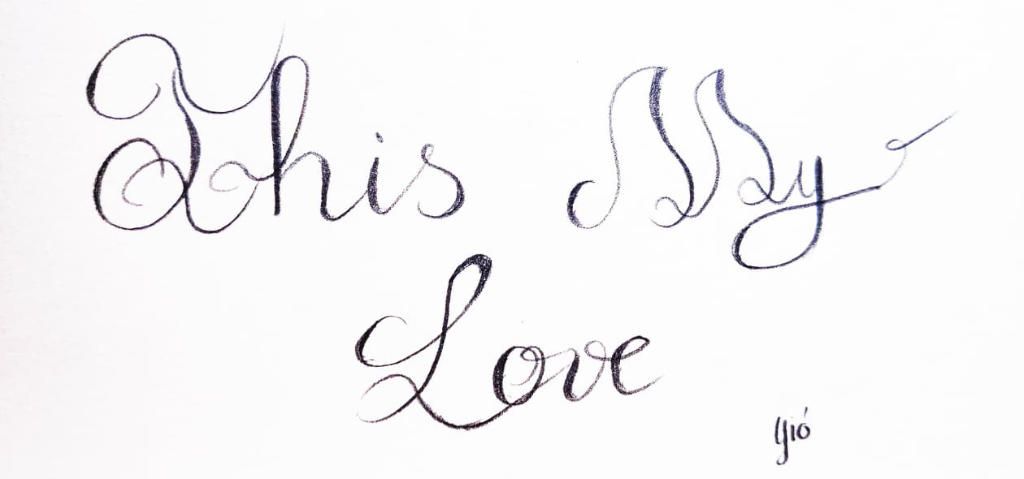 This My
Love
Gió